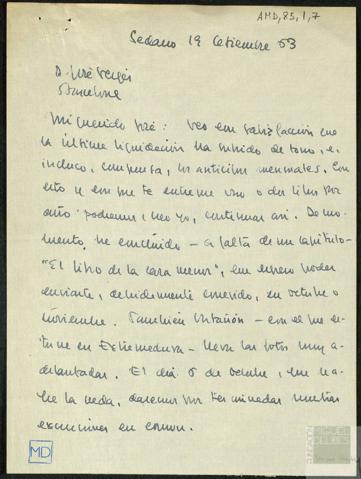 AMD, 85, 1, 7
Sedano 19 Setiembre 63
D. José Vergés
Barcelona
Mi querido José: Veo con satisfacción que
la última liquidación ha subido de tono, e,
incluso, compensa, los anticipos mensuales. Con
esto y con que te entregue uno o dos libros por
año podremos, creo yo, continuar así. De mo-
mento, he concluido – a falta de un capítulo –
"El libro de la caza menor", que espero poder
enviarte, debidamente corregido, en octubre o
noviembre. También Ontañón – con el que es-
tuve en Extremadura – lleva las fotos muy a-
delantadas. El día 6 de octubre, que se
abre la veda, daremos por terminadas nuestras
excursiones en común.
MD
FUNDACIÓN
MIGUEL
DELIBES